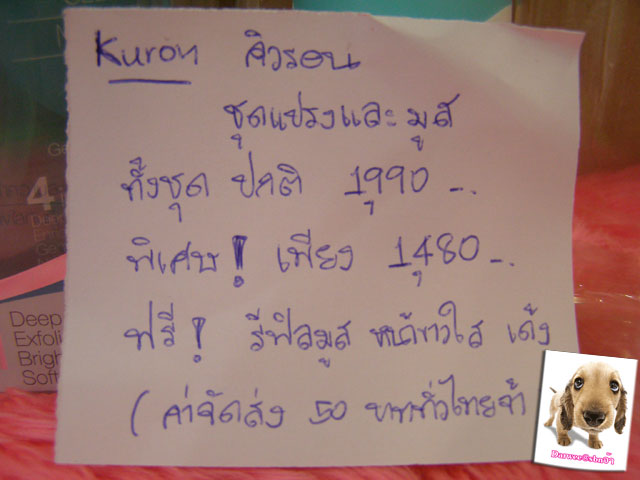 Kuron คิวรอน
ชุดแปรงและมูส
ทั้งชุด ปกติ 1,990 -.
พิเศษ! เพียง 1,480 -.
ฟรี! รีฟิลมูส หน้าขาวใส เด้ง
(ค่าจัดส่ง 50 บาททั่วไทยจ้า
4
Deep
Exfoli
Brigh
Soft